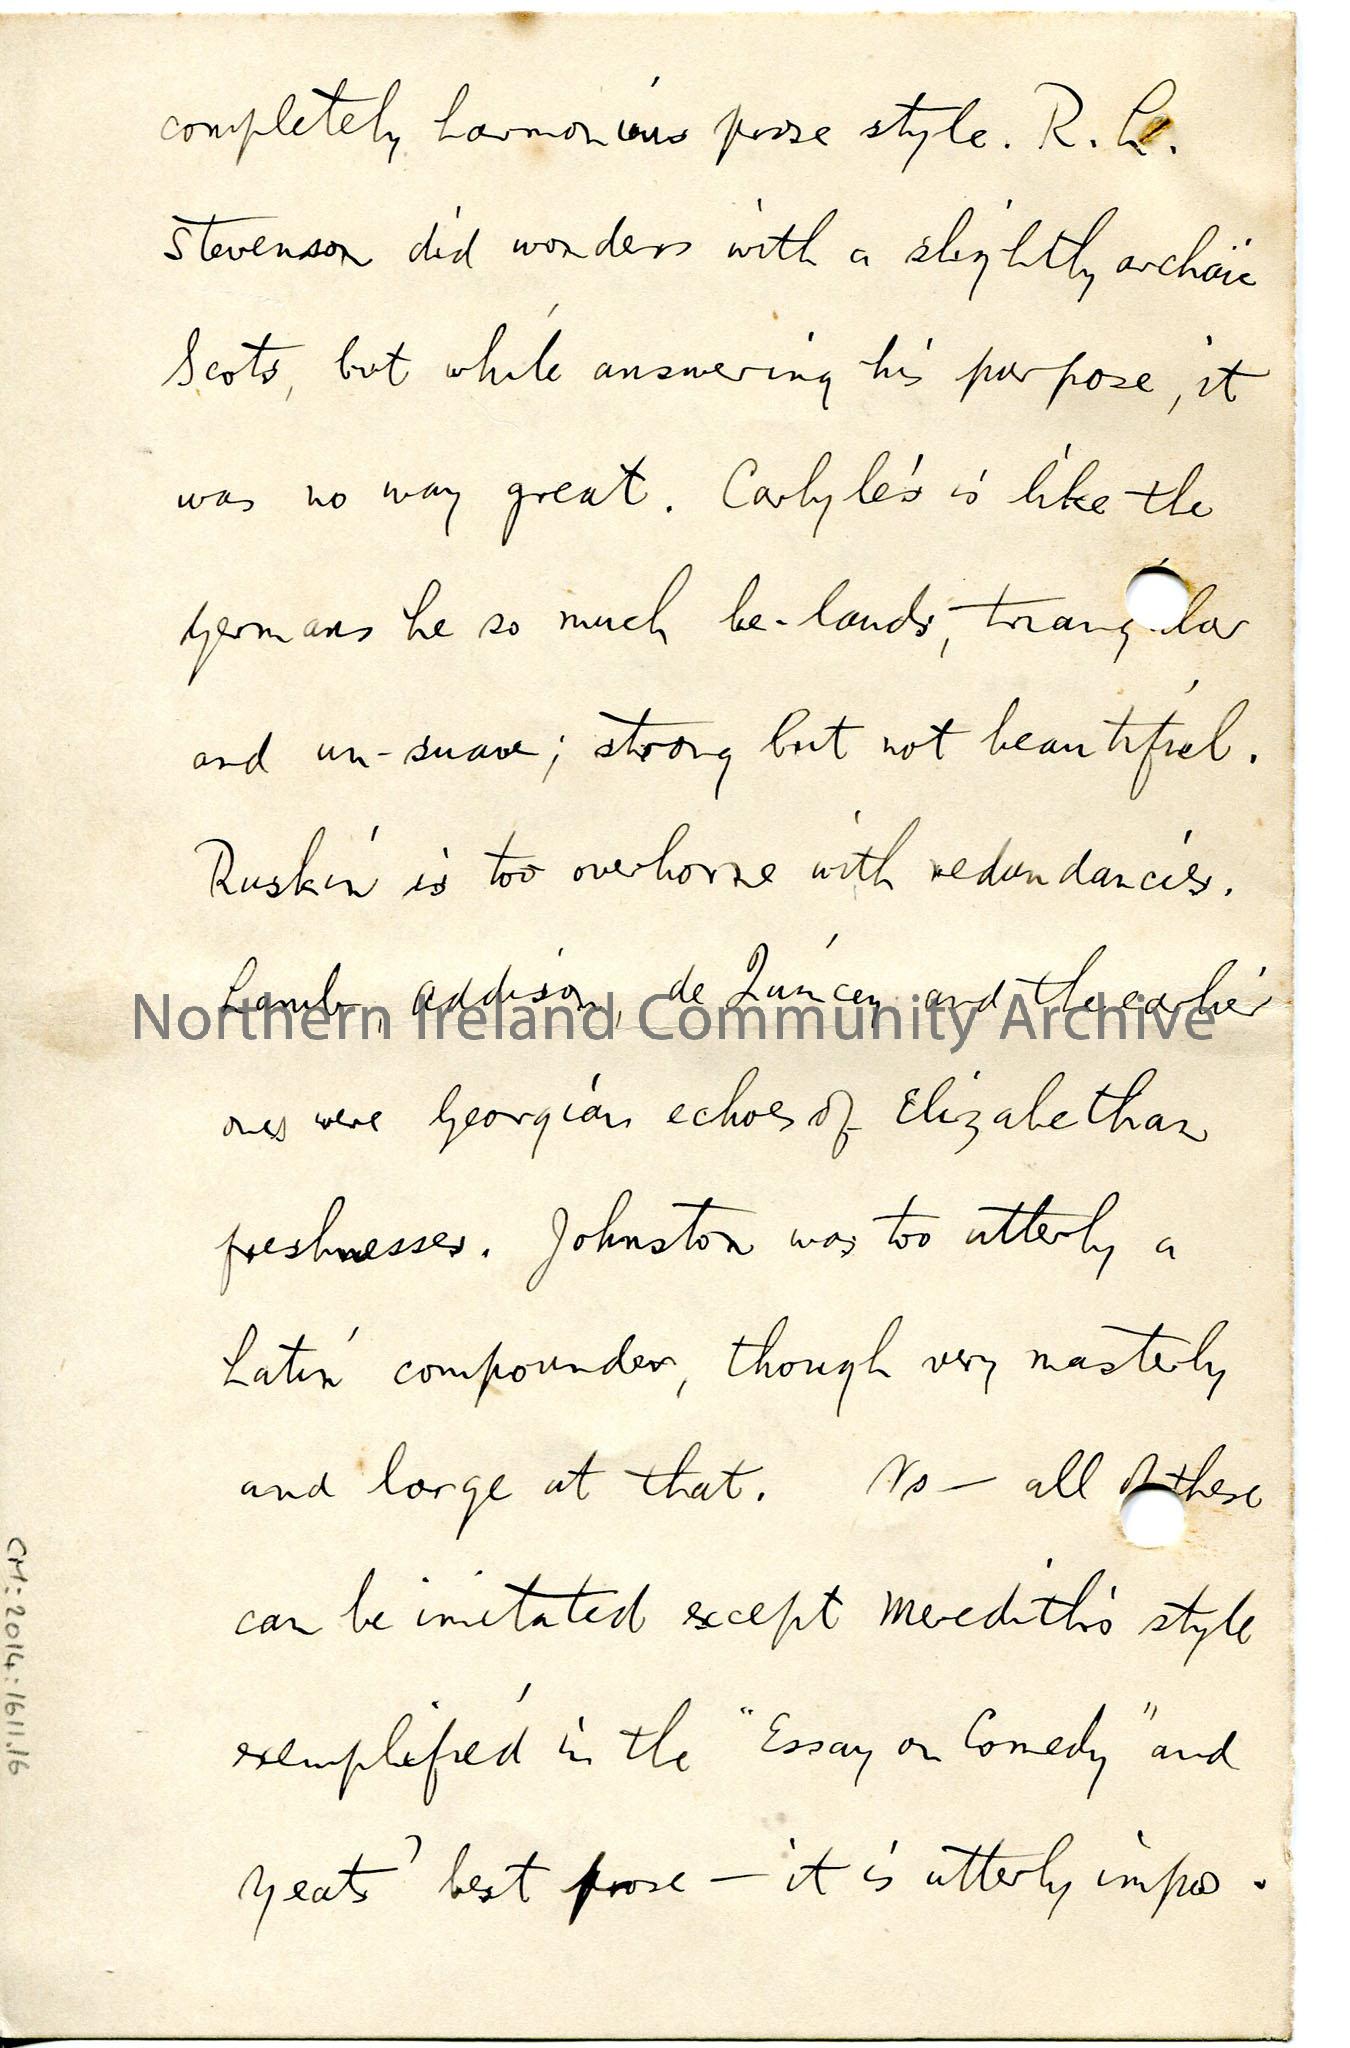 completely harmonious prose style. R. L.
Stevenson did wonders with a slightly archaïc
Scots, but while answering his purpose, it
was no way great. Carlyle's is like the
germans he so much be-lauds, triang lar
and un-suave; strong but not beautiful.
Ruskin is too overborne with redundancies.
Lamb, Addison, de Quincey and the earlier
Northern Ireland Community Archive
ones were Georgian echoes of Elizabethan
freshnesses. Johnston was too utterly a
Latin compounder, though very masterly
and large at that. No — all of these
can be imitated except Meredith's style
exemplified in the "Essay on Comedy" and
Yeats' best prose — it is utterly impos -
CM:2014:1611.16